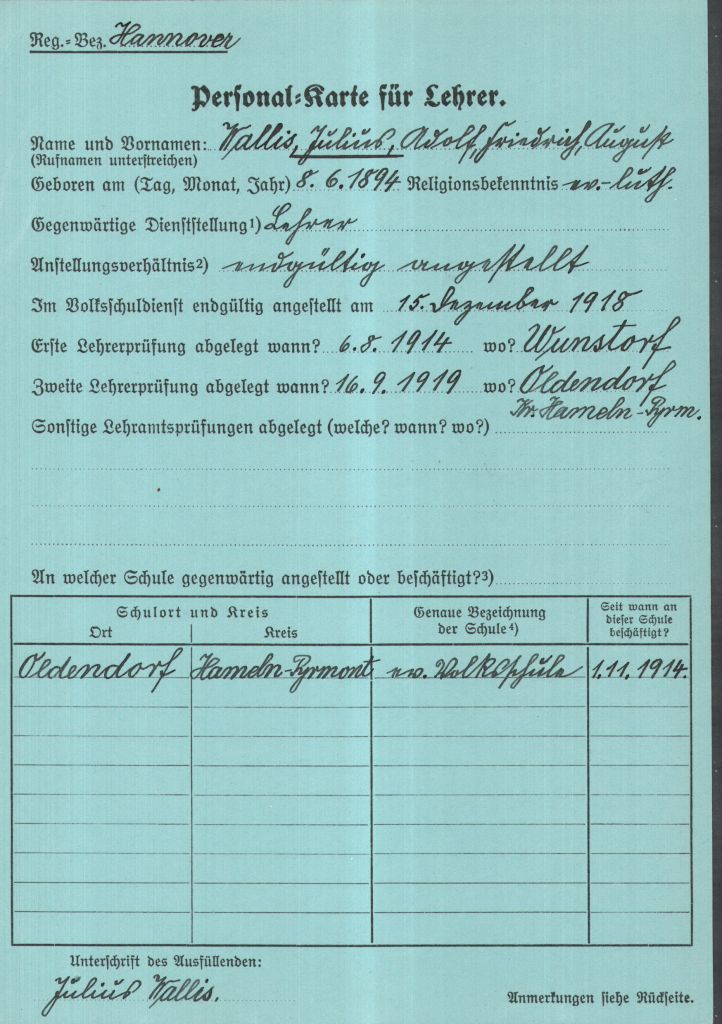 Reg.-Bez. Hannover
Personal-Karte für Lehrer.
Name und Vornamen: Wallis, Julius, Adolf, Friedrich, August
(Rufnamen unterstreichen)
Geboren am (Tag, Monat, Jahr) 8. 6. 1894 Religionsbekenntnis ev.-luth.
Gegenwärtige Dienststellung¹) Lehrer
Anstellungsverhältnis²) endgültig angestellt
Im Volksschuldienst endgültig angestellt am 15. Dezember 1918
Erste Lehrerprüfung abgelegt wann? 6.8. 1914 wo? Wunstorf
Zweite Lehrerprüfung abgelegt wann? 16. 9. 1919 wo? Oldendorf
Kr. Hameln-Pyrm.
Sonstige Lehramtsprüfungen abgelegt (welche? wann? wo?)
An welcher Schule gegenwärtig angestellt oder beschäftigt?³)
Schulort und Kreis Genaue Bezeichnung der Schule⁴) Seit wann an dieser Schule beschäftigt?
Ort Kreis
Oldendorf Hameln-Pyrmont ev. Volksschule 1. 11. 1914.
Unterschrift des Ausfüllenden:
Julius Wallis.
Anmerkungen siehe Rückseite.